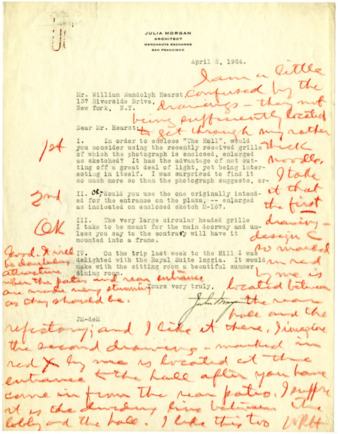 JULIA MORGAN
ARCHITECT
MERCHANTS EXCHANGE
SAN FRANCISCO
April 5, 1924.
Mr. William Randolph Hearst,
137 Riverside Drive,
New York, N.Y.
Dear Mr. Hearst:
I. In order to enclose "The Hall", would
you consider using the recently received grille
of which the photograph is enclosed - enlarged
as sketched? It has the advantage of not cut-
ting off a great deal of light, yet being inter-
esting in itself. I was surprised to find it
so much more so than the photograph suggests, or,
II. Or, Would you use the one originally intend-
ed for the entrance on the plans, -- enlarged
as indicated on enclosed sketch
III. The very large circular headed grille
I take to be meant for the main doorway and un-
less you say to the contrary will have it
mounted into a frame.
IV. On the trip last week to the Hill I was
delighted with the Royal Suite loggia. It would
make with the sitting room a beautiful summer
dining room.
Yours very truly,
Julia Morgan
JM-deM
1st
2nd
OK
Good. It will
be doubly
attractive
when the patio and rear entrance
are made as stunning
as they should be.
I am a little
confused by the
drawings – they not
being sufficiently located
to get through my rather
thick
noodle.
I take
it that
the first
drawing –
design
so marked
in red
by me is
located between
the rear
hall and the
refectory; and I like it there. I imagine
the second drawing – marked in
red X by me is located at the
entrance to the hall after you have
come in from the rear patio. I suppose
it is the dividing line between the
lobby and the hall. I like this too WRH